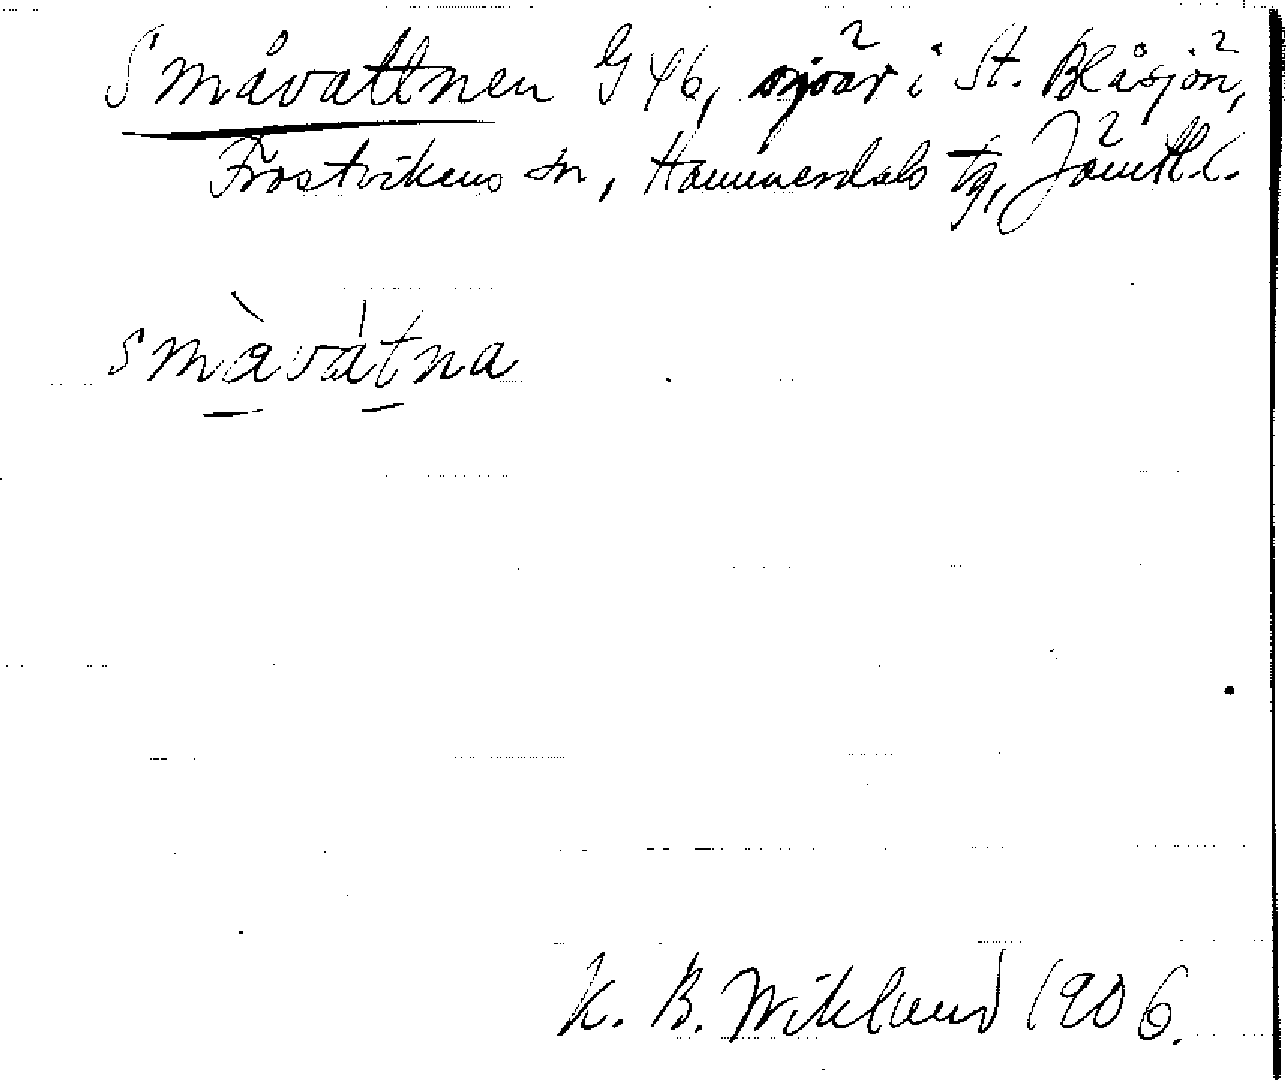 Småvattnen G 46, sjöar i St. Blåsjön,
Frostvikens sn, Hammerdals tg, Jämtl. l.
smàvátna
K. B. Wiklund 1906.